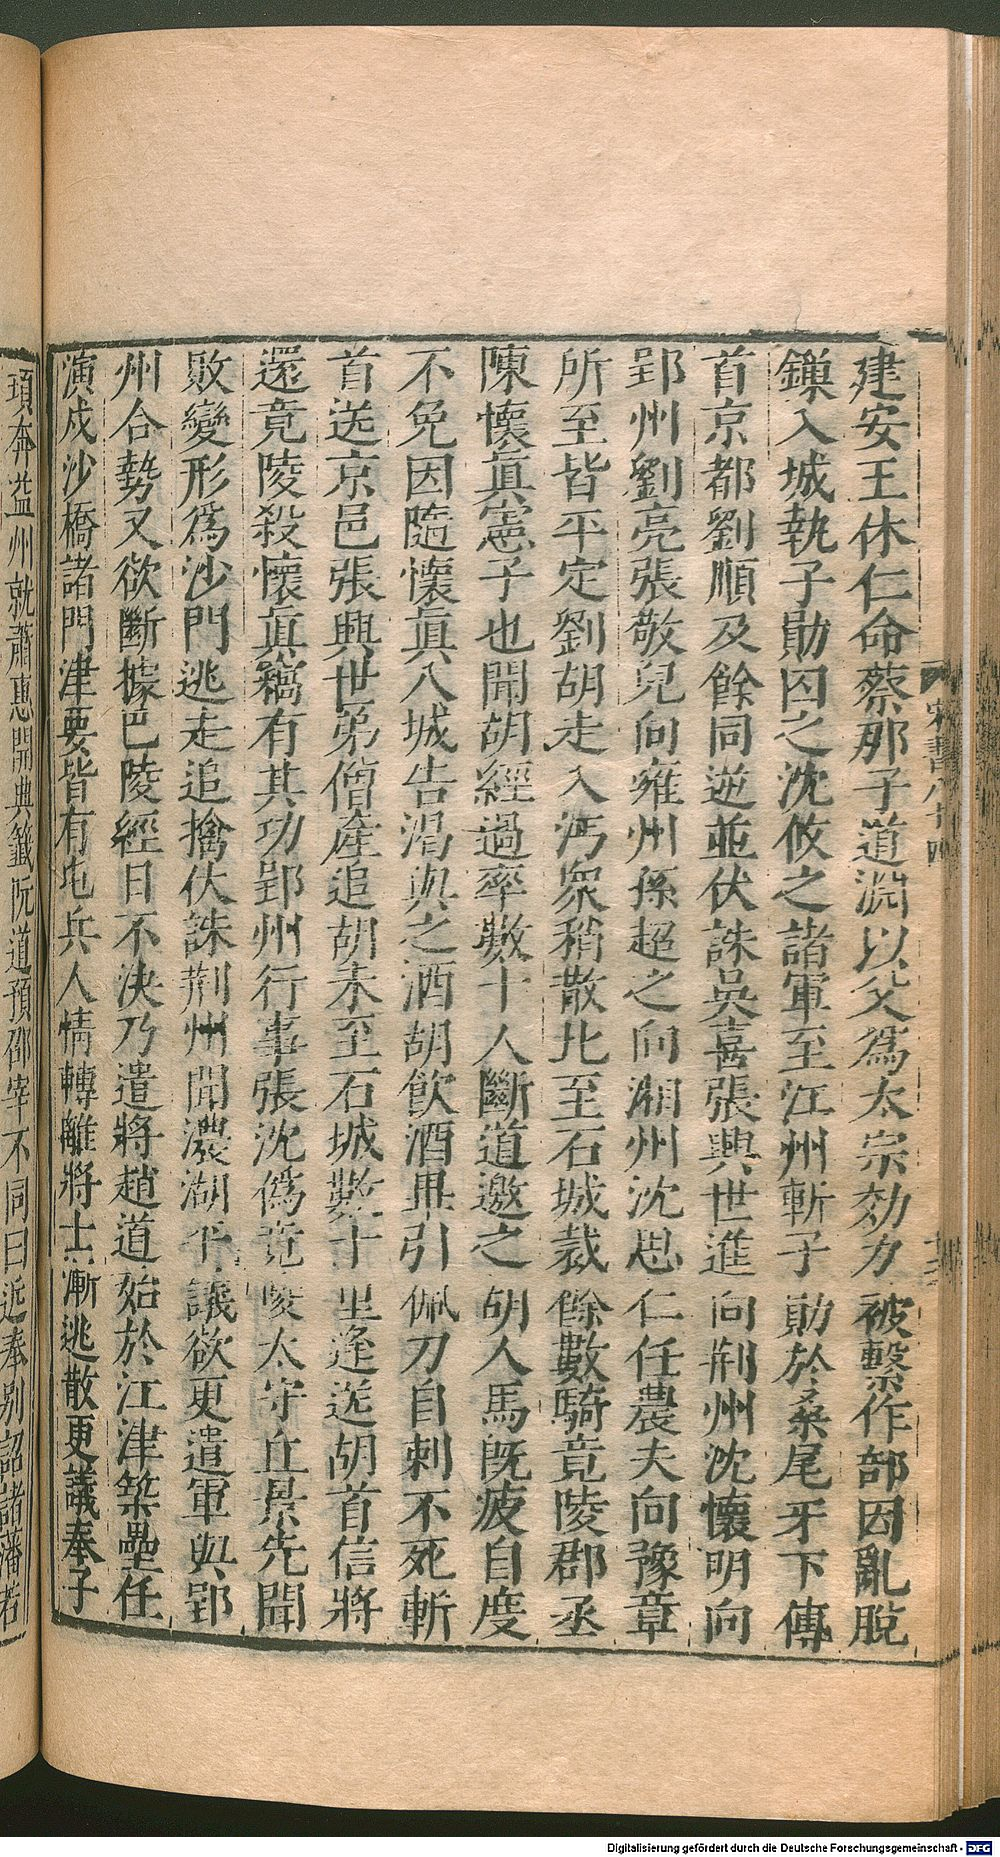 建安王休仁命蔡那子道淵以父爲太宗効力被繫作部因亂脫
鏁入城執子勛囚之沈攸之諸軍至江州斬子勛於桑尾牙下傳
首京都劉順及餘同逆並伏誅吳喜張興世進向荆州沈懷明向
郢州劉亮張敬兒向雍州孫超之向湘州沈思仁任農夫向豫章
所至皆平定劉胡走入沔衆稍散北至石城裁餘數騎竟陵郡丞
陳懷眞憲子也聞胡經過率數十人斷道邀之胡人馬旣疲自度
不免因隨懷眞入城告渴與之酒胡飲酒畢引佩刀自刺不死斬
首送京邑張興世弟僧產追胡未至石城數十里逢送胡首信將
還竟陵殺懷眞竊有其功郢州行事張沈僞竟陵太守丘景先聞
敗變形爲沙門逃走追擒伏誅荆州聞濃湖平議欲更遣軍與郢
州合勢又欲斷據巴陵經日不決乃遣將趙道始於江津築壘任
演戍沙橋諸門津要皆有屯兵人情轉離將士漸逃散更議奉子
頊奔益州就蕭惠開典籤阮道預邵宰不同曰近奉别詔諸藩若
宋書八十四
Digitalisierung gefördert durch die Deutsche Forschungsgemeinschaft - DFG